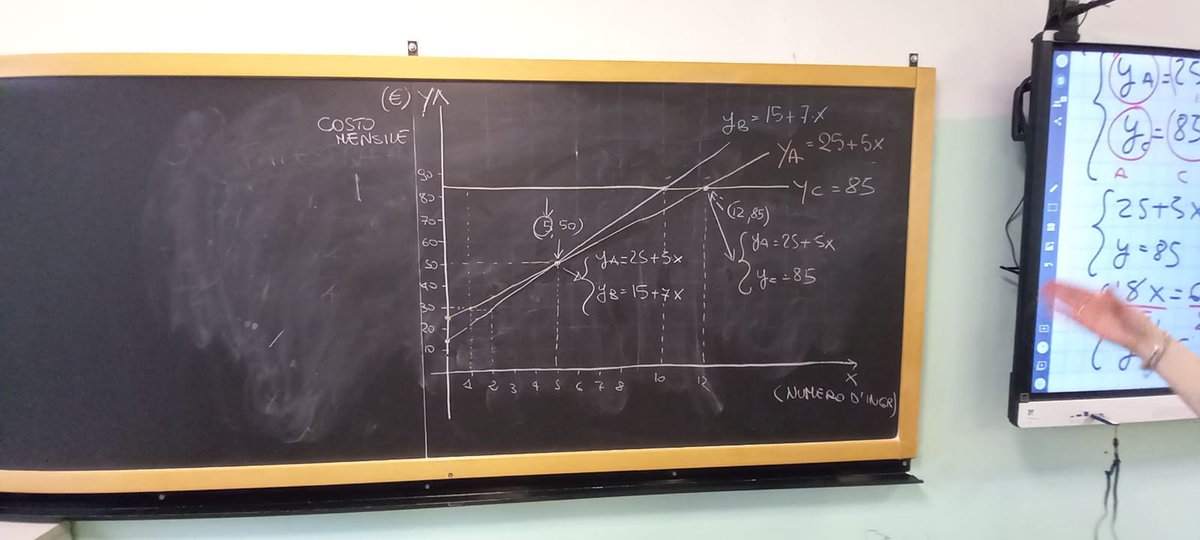 (€) Y
COSTO
MENSILE
yB = 15+7·x
yA = 25+5x
yC = 85
90
80
70
60
50
30
20
10
(5, 50)
(12, 85)
{ yA = 25+5x
yB = 15+7x
{ yA = 25+5x
yC = 85
1 2 3 4 5 6 7 8 10 12
x
(NUMERO D'INGR)
{ yA = (25
yC = (85
A C
{ 25+5x
y = 85